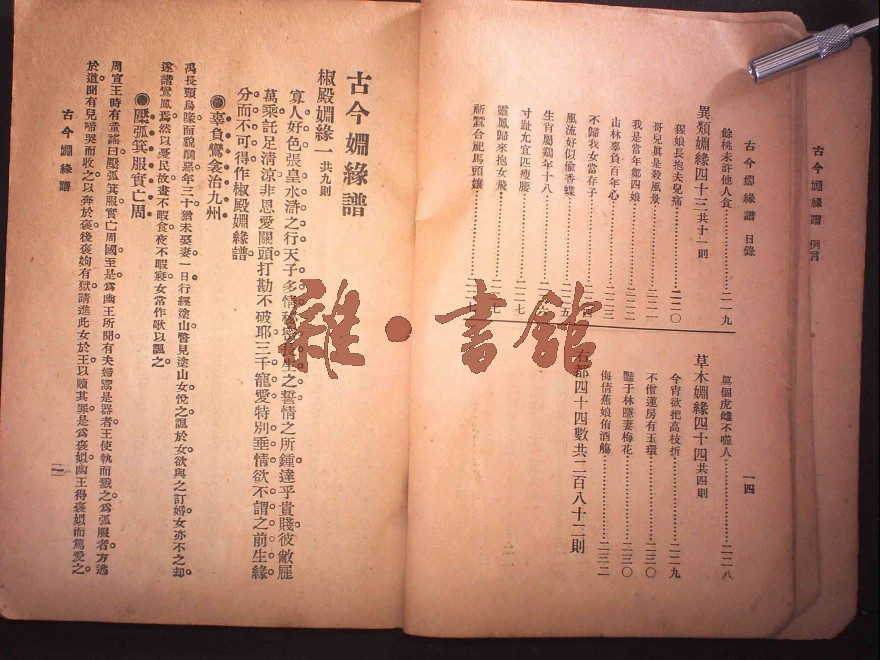 古今婣緣譜 例言
古今婣緣譜 目錄 一四
餘桃未許他人食⋯⋯二一九
異類婣緣四十三共十一則
猩娘長抱夫兒痛⋯⋯二二〇
哥兒眞是殺風景⋯⋯二二一
我是當年鄭四娘⋯⋯二二二
山林辜負百年心⋯⋯二二三
不歸我女當存子
風流好似偷香蝶
生肖屬鷄年十八
寸趾尤宜匹瘦腰⋯⋯二二七
靈鳳歸來抱女飛
蠶合祀馬頭孃
眞個虎雌不噬人⋯⋯二二八
草木婣緣四十四共四則
今宵欲把高枝折⋯⋯二二九
不僧蓮房有玉環⋯⋯二三〇
豔于林隱妻梅花⋯⋯二三〇
侮倩蕉娘侑酒觴⋯⋯二三二
右都四十四數共二百八十三則
古今婣緣譜
椒殿婣緣一 共九則
寡人好色張皇水滸之行天子多情秘密長生之誓情之所鍾達乎貴賤彼敝屣
萬乘託足清涼非恩愛關頭打勘不破耶三千寵愛特別垂情欲不謂之前生緣
分而不可得作椒殿婣緣譜
◉辜負鸞衾治九州
禹長頸鳥喙而貌醜惡年三十猶未娶妻一日行經塗山瞥見塗山女悅之諷於女欲與之訂婚女亦不之却
遂諧鸞鳳焉然以憂民故晝不暇食夜不暇寢女當作歌以諷之
◉檿弧箕服實亡周
周宣王時有童謠曰檿弧箕服實亡周國至是爲幽王所聞有夫婦鬻是器者王使執而戮之爲弧服者方逃
於道聞有兒啼哭而收之以奔於褒後褒姁有獄請進此女於王以贖其罪是爲褒姒幽王得褒姒而篤愛之
古今婣緣譜 一
雜·書館